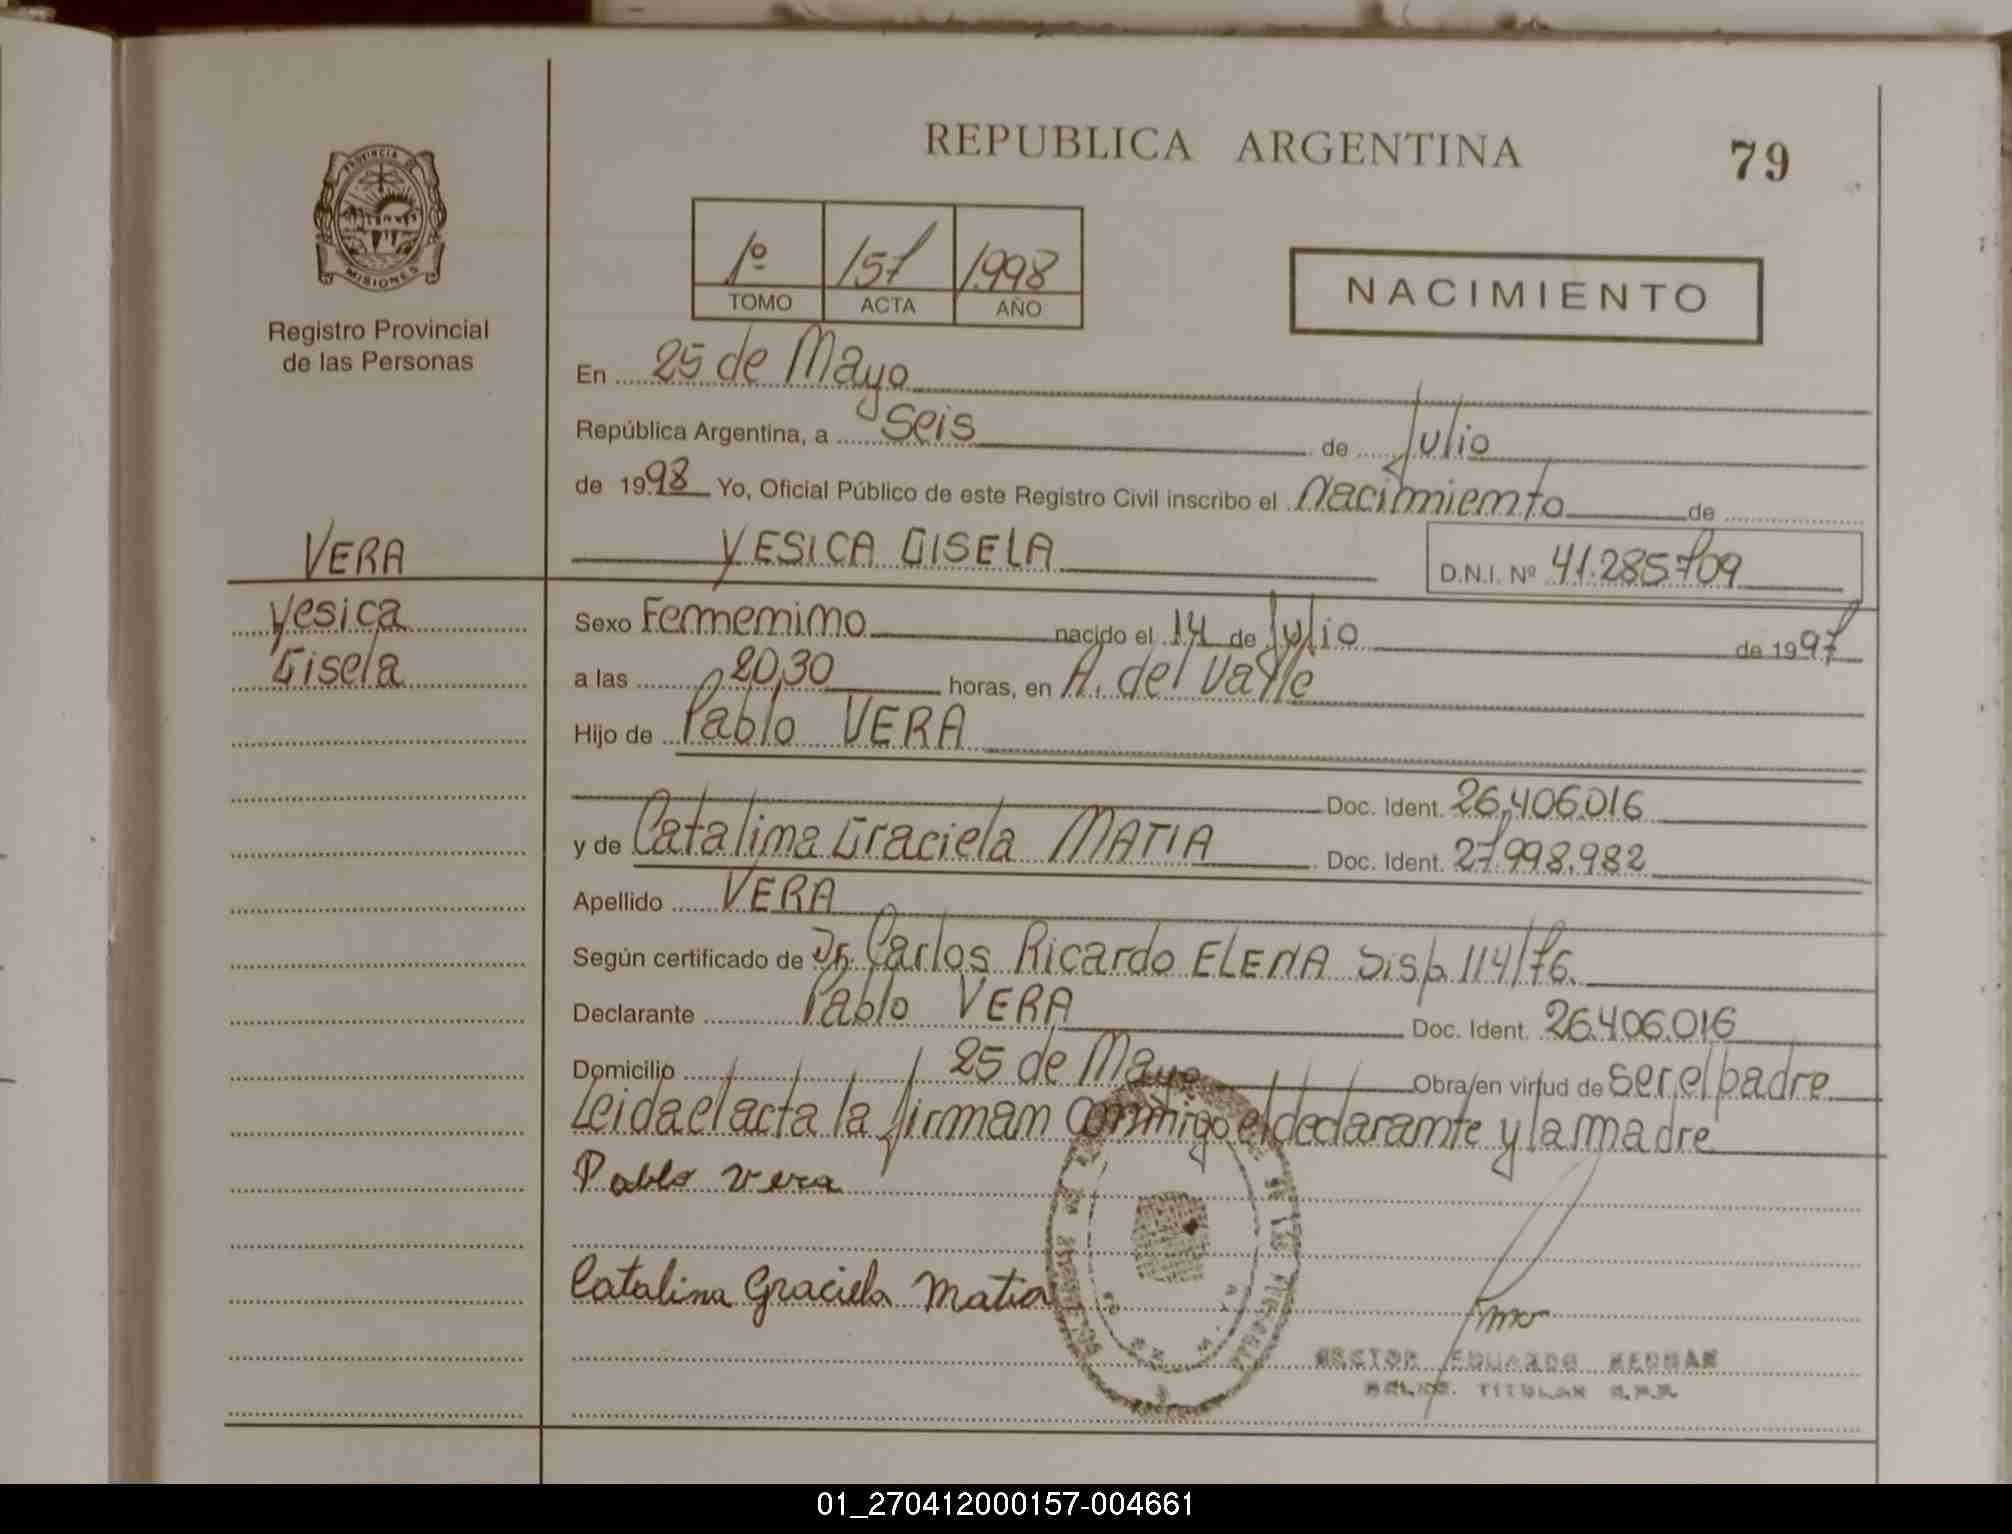 REPUBLICA ARGENTINA
79
PROVINCIA DE
MISIONES
Registro Provincial
de las Personas
1º 157 1998
TOMO ACTA AÑO
NACIMIENTO
En 25 de Mayo
República Argentina, a Seis de Julio
de 1998 Yo, Oficial Público de este Registro Civil inscribo el Nacimiento de
VERA
YESICA GISELA
D.N.I. Nº 41.285.709
Yesica
Gisela
Sexo Femenino nacido el 14 de Julio de 1997
a las 20,30 horas, en A. del Valle
Hijo de Pablo VERA
Doc. Ident. 26.406.016
y de Catalina Graciela MATIA Doc. Ident. 27.998.982
Apellido VERA
Según certificado de Dr. Carlos Ricardo ELENA Disp. 114/76.
Declarante Pablo VERA Doc. Ident. 26.406.016
Domicilio 25 de Mayo Obra en virtud de ser el padre
Leida el acta la firman conmigo el declarante y la madre
Pablo Vera
Catalina Graciela Matia
EDUARDO
TITULAR
01_270412000157-004661